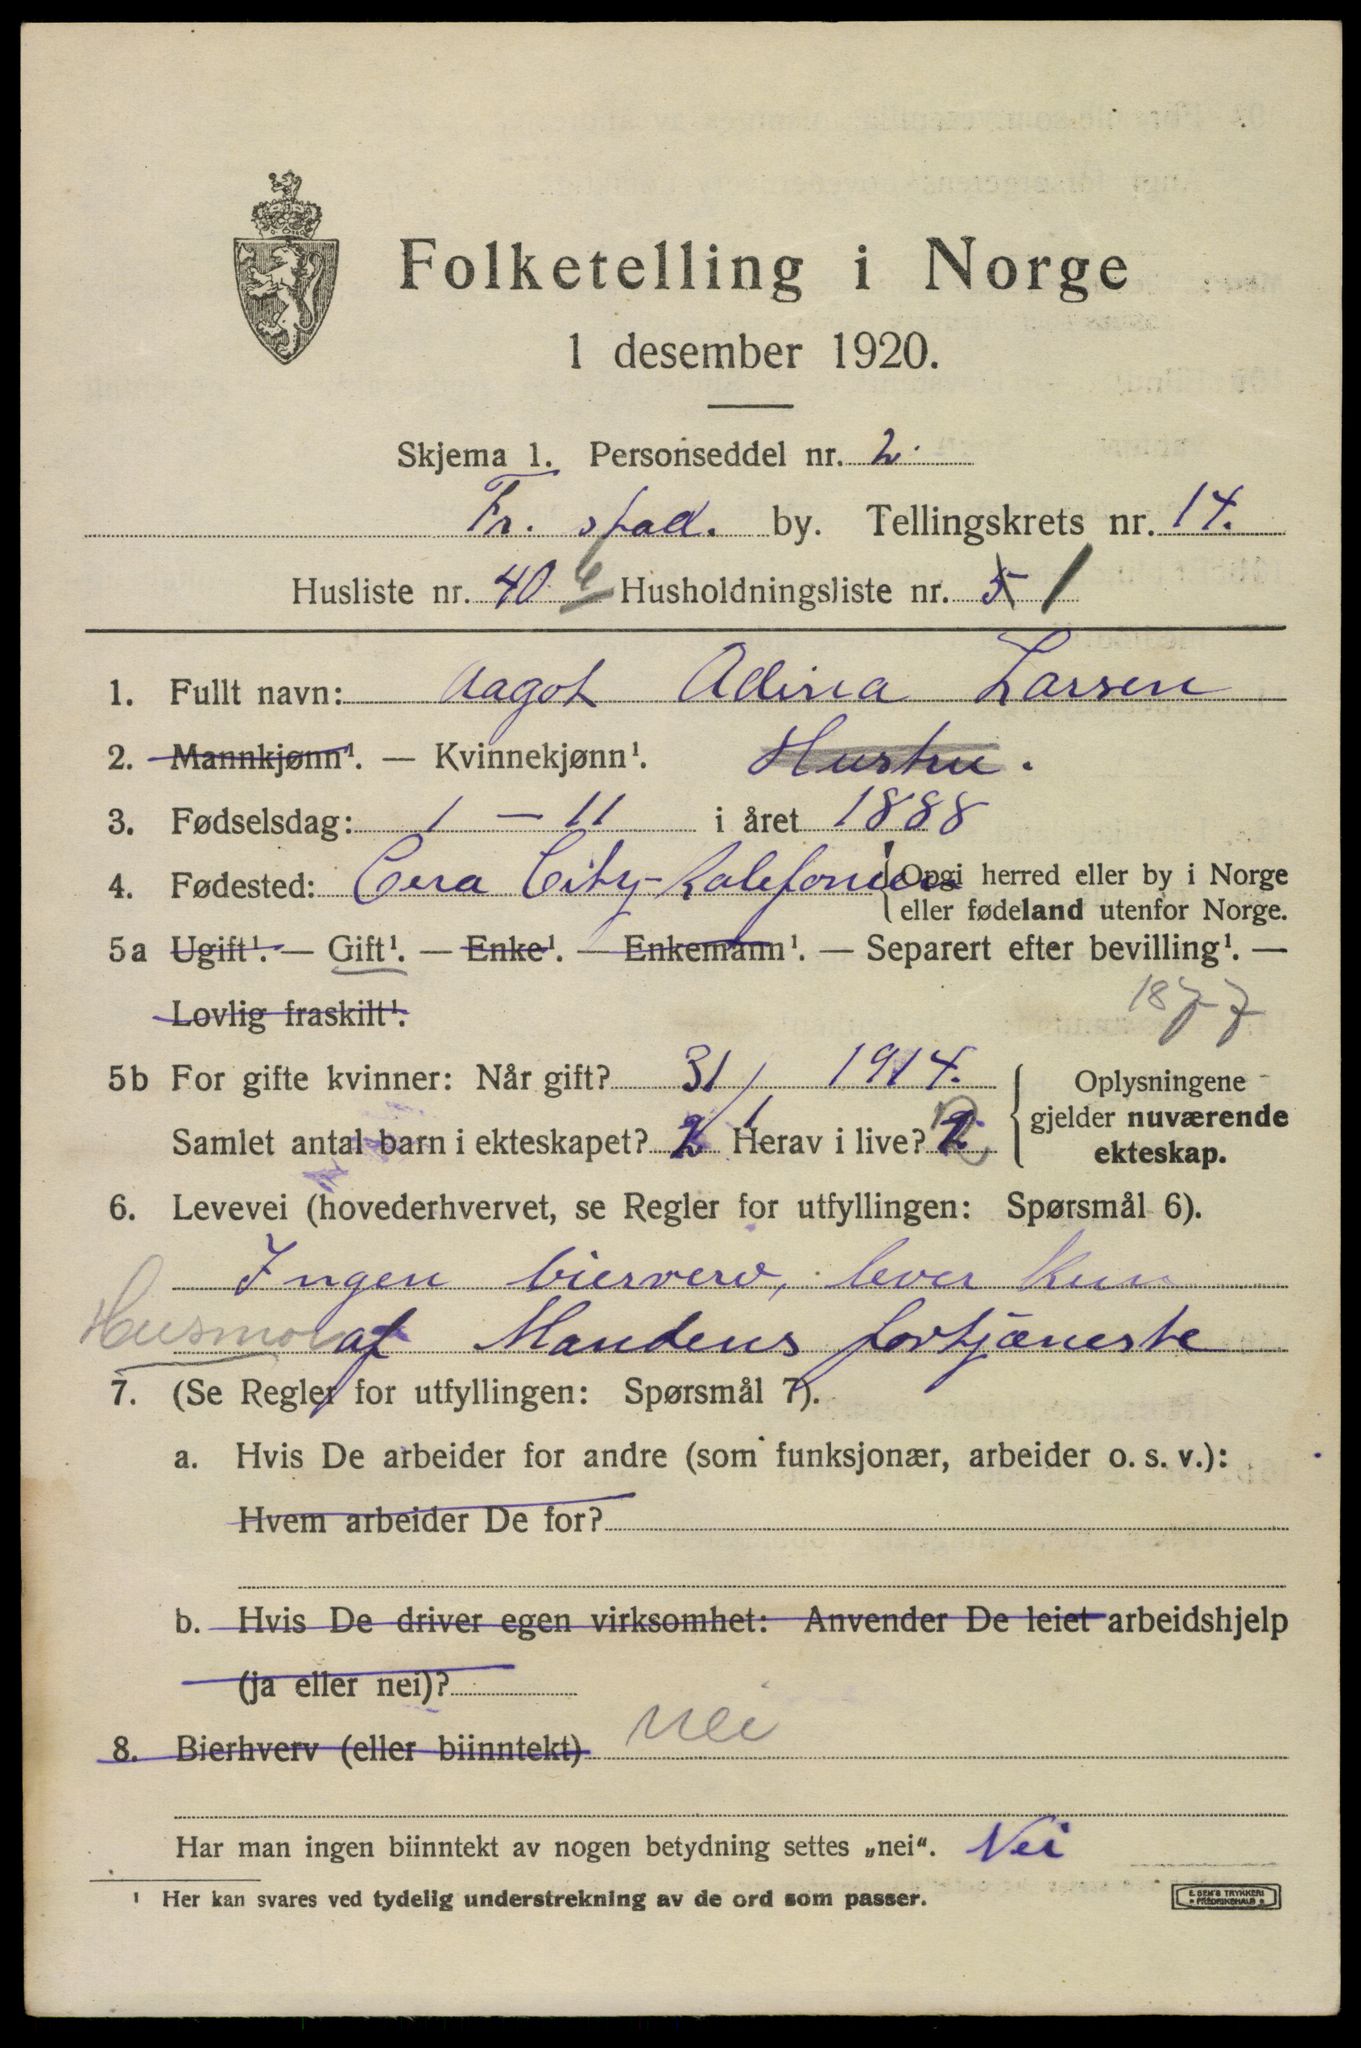 Folketelling i Norge
1 desember 1920.
Skjema 1. Personseddel nr. 2.
Fr.stad. by. Tellingskrets nr. 14.
Husliste nr. 40 Husholdningsliste nr. 5 1
1. Fullt navn: Aagot Adina Larsen
2. Mannkjønn¹. — Kvinnekjønn¹. Hustru.
3. Fødselsdag: 1 – 11 i året 1888
4. Fødested: Cera City-Kalefonien Opgi herred eller by i Norge
eller fødeland utenfor Norge.
5a Ugift¹. — Gift¹. — Enke¹. — Enkemann¹. — Separert efter bevilling¹. —
Lovlig fraskilt¹.
1877
5b For gifte kvinner: Når gift? 31/1 1914.
Samlet antal barn i ekteskapet? 2 Herav i live? 2
Oplysningene
gjelder nuværende
ekteskap.
6. Levevei (hovederhvervet, se Regler for utfyllingen: Spørsmål 6).
Ingen bierverv, lever kun
Husmor af Mandens fortjæneste
7. (Se Regler for utfyllingen: Spørsmål 7).
a. Hvis De arbeider for andre (som funksjonær, arbeider o. s. v.):
Hvem arbeider De for?
b. Hvis De driver egen virksomhet: Anvender De leiet arbeidshjelp
(ja eller nei)?
8. Bierhverv (eller biinntekt) Nei
Har man ingen biinntekt av nogen betydning settes „nei“. Nei
¹ Her kan svares ved tydelig understrekning av de ord som passer.
E. SEM'S TRYKKERI
FREDRIKSHALD